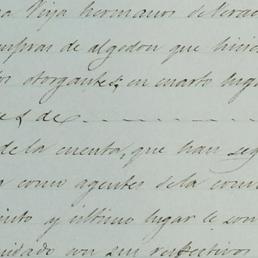 Viya hermanos de Verac
compras de algodon que hicie
otorgantes; en cuarto luga
de
de la cuenta, que han seg
como agentes de la com
y ultimo lugar le son
con sus respectivos